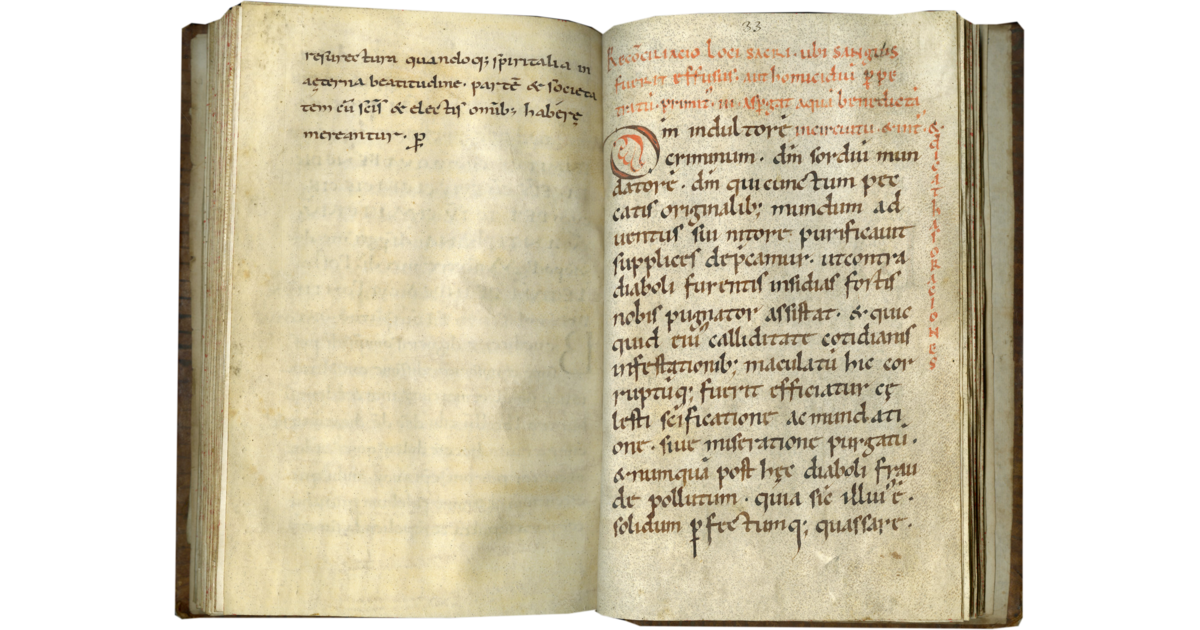 resurectura quandoq; sp̄iritalia in
aęterna beatitudine· partē & societa
tem cū scīs & electis omīb; haberę
mereantur· p̱
33
Recōciliacio loci sacra· ubi sanguis
fuerit effusus· aut homicidiū p̱pe
tratū· primit; in aspgat aqua benedicta
incircuitu· & int̄·
& dicat has oraciones
Dm̄ indultorē
criminum· dm̄ sordiū mun
datorē· dm̄ qui cunctum pec
catis originalib; mundum ad
uentus sui nitore purificauit
supplices dep̄camur· ut contra
diaboli furentis insidias fortis
nobis pugnator assistat· & quic
quid eiꝰ calliditate cotidianis
infestationib; maculatū hic cor
ruptūq; fuerit efficiatur cę
lesti scīficatione ac mundati
one· siue miseratione purgatū·
& numquā post hęc diaboli frau
de pollutum· quia sic illiꝰ ē·
solidum p̱fectumq; quassare·